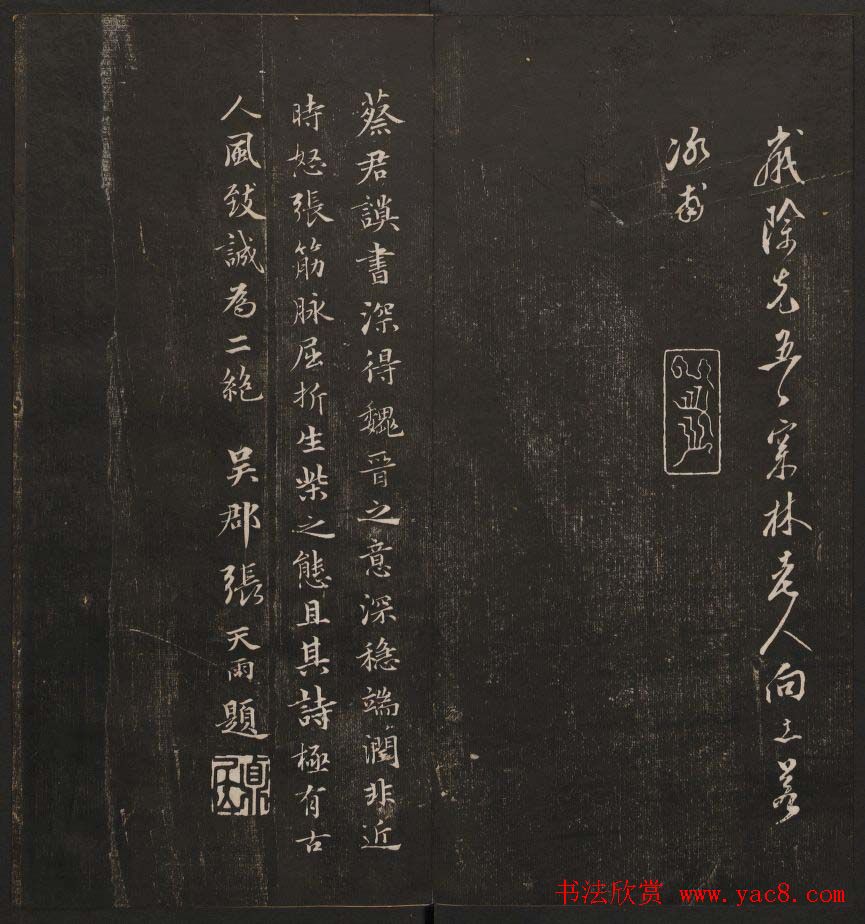 歲除先五日林老人向
冰甫
蔡君謨書深得魏晉之意深穩端潤非近
時怒張筋脉屈折生柴之態且其詩極有古
人風致誠為二絶 吳郡張天雨題
书法欣赏 www.yac8.com